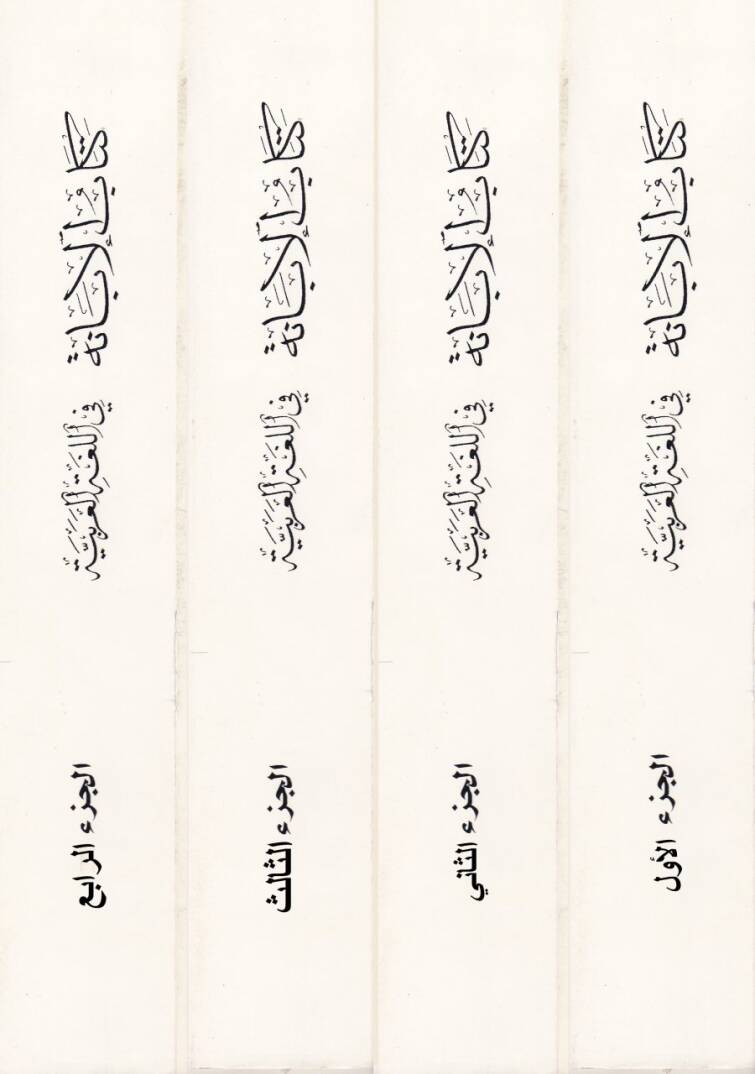 كِتَابُ الإِبَانَة
فِي اللُّغَةِ العَرَبِيَّةِ
الجزء الأول
كِتَابُ الإِبَانَة
فِي اللُّغَةِ العَرَبِيَّةِ
الجزء الثاني
كِتَابُ الإِبَانَة
فِي اللُّغَةِ العَرَبِيَّةِ
الجزء الثالث
كِتَابُ الإِبَانَة
فِي اللُّغَةِ العَرَبِيَّةِ
الجزء الرابع